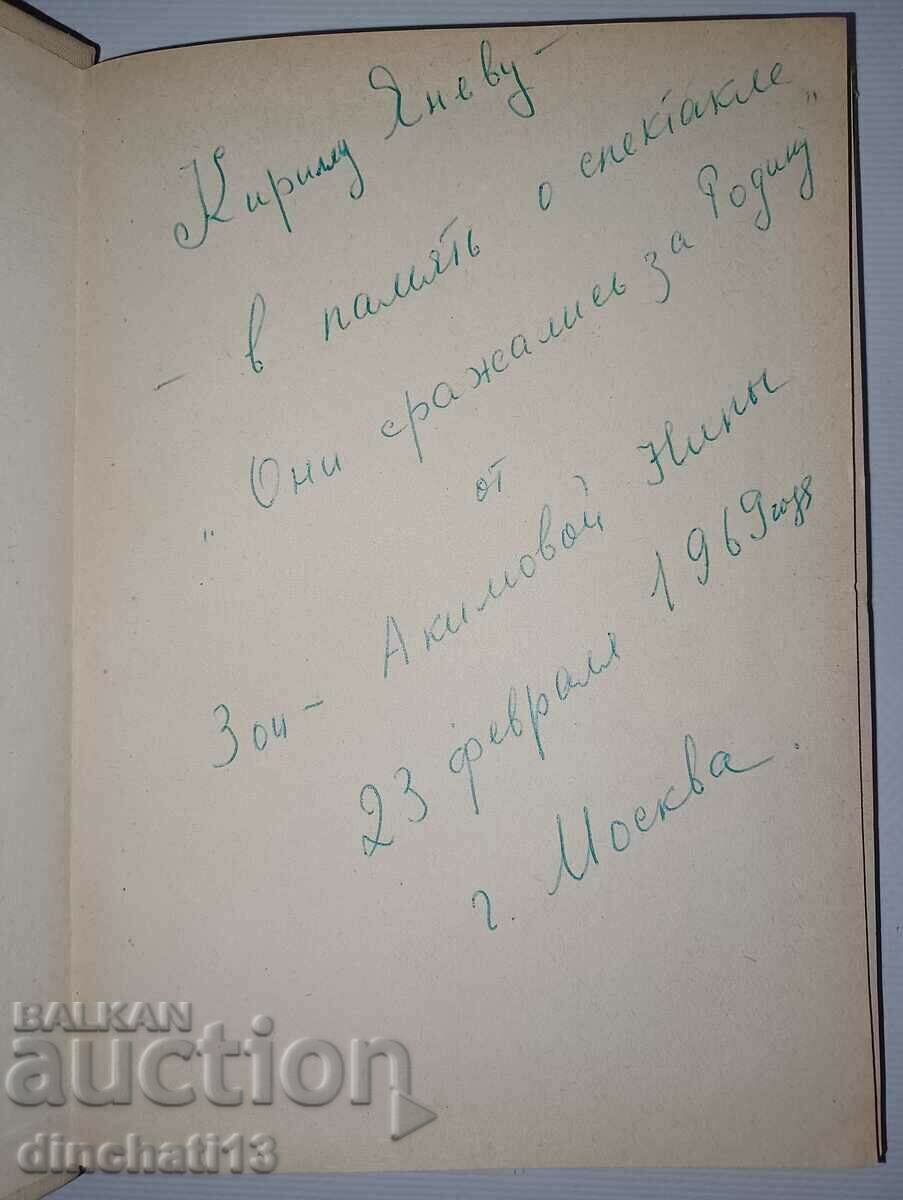 Кириллу Яневу –
– в память о спектакле
„Они сражались за Родину"
от
Зои – Акимовой Нины
23 февраля 1969 года
г. Москва.
BALKAN
auction
dinchati13